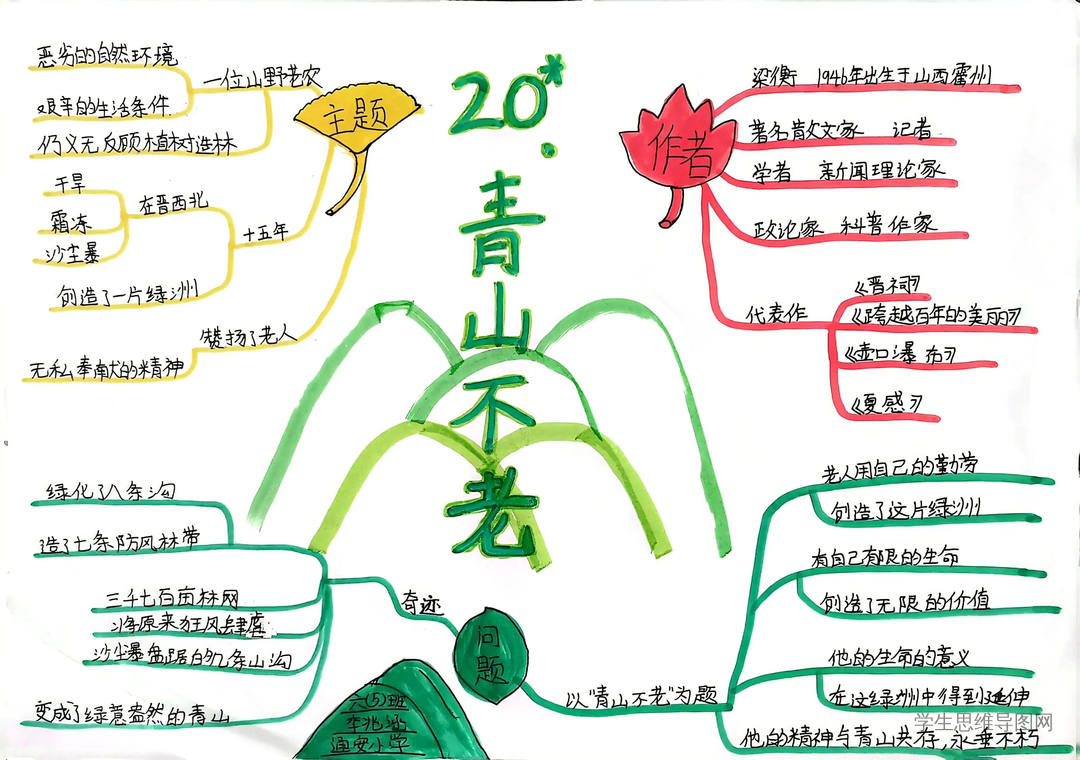 20*.
青山不老
主题
一位山野老农
恶劣的自然环境
艰辛的生活条件
仍义无反顾植树造林
十五年
在晋西北
干旱
霜冻
沙尘暴
创造了一片绿洲
赞扬了老人
无私奉献的精神
作者
梁衡 1946年出生于山西霍州
著名散文家 记者
学者 新闻理论家
政论家 科普作家
代表作
《晋祠》
《跨越百年的美丽》
《壶口瀑布》
《夏感》
问题
奇迹
绿化了八条沟
造了七条防风林带
三千七百亩林网
将原来狂风肆虐
沙尘暴盘踞的几条山沟
变成了绿意盎然的青山
以"青山不老"为题
老人用自己的勤劳
创造了这片绿洲
有自己有限的生命
创造了无限的价值
他的生命的意义
在这绿洲中得到延伸
他的精神与青山共存,永垂不朽
六(5)班
李兆
通安小学
学生思维导图网